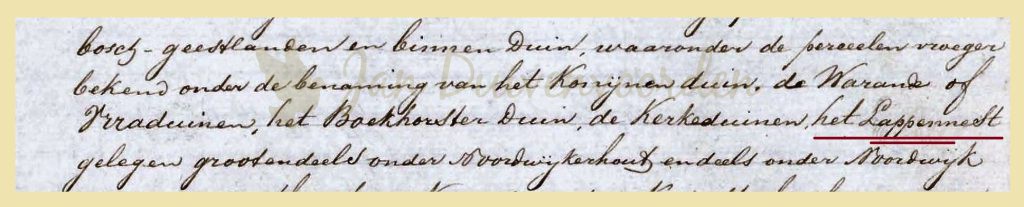 bosch-geestlanden en binnen Duin, waaronder de perceelen vroeger
bekend onder de benaming van het Konijnen duin, de Warande of
het Boekhorster Duin, de Kerkeduinen, het Lappennest
gelegen grootendeels onder Noordwijkerhout en deels onder Noordwijk